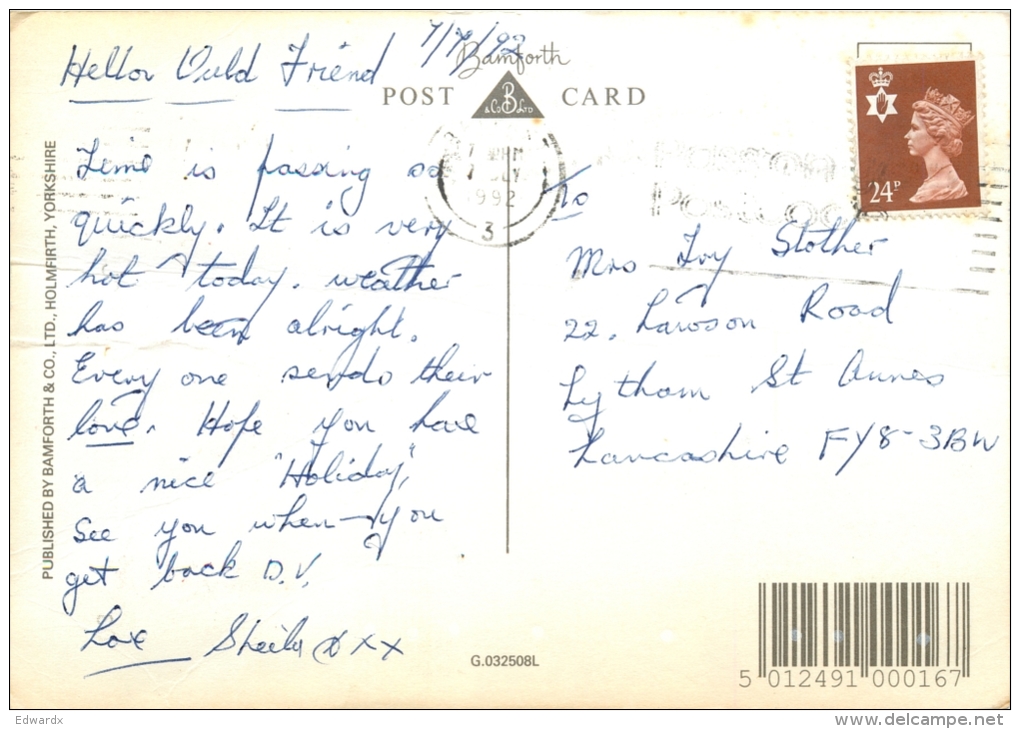 7/7/92
Hellor Ould Friend
Bamforth
POST CARD
B
& Co Ltd
Time is passing so
quickly. It is very
hot today. weather
has been alright.
Every one sends their
love. Hope you have
a nice "Holiday",
See you when you
get back D.V.
Love Sheila xxx
PUBLISHED BY BAMFORTH & CO., LTD., HOLMFIRTH, YORKSHIRE
1992
3
24P
To
Mrs Ivy Stother
22, Lawson Road
Lytham St Annes
Lancashire FY8-3BW
G.032508L
5 012491 000167
Edwardx
www.delcampe.net